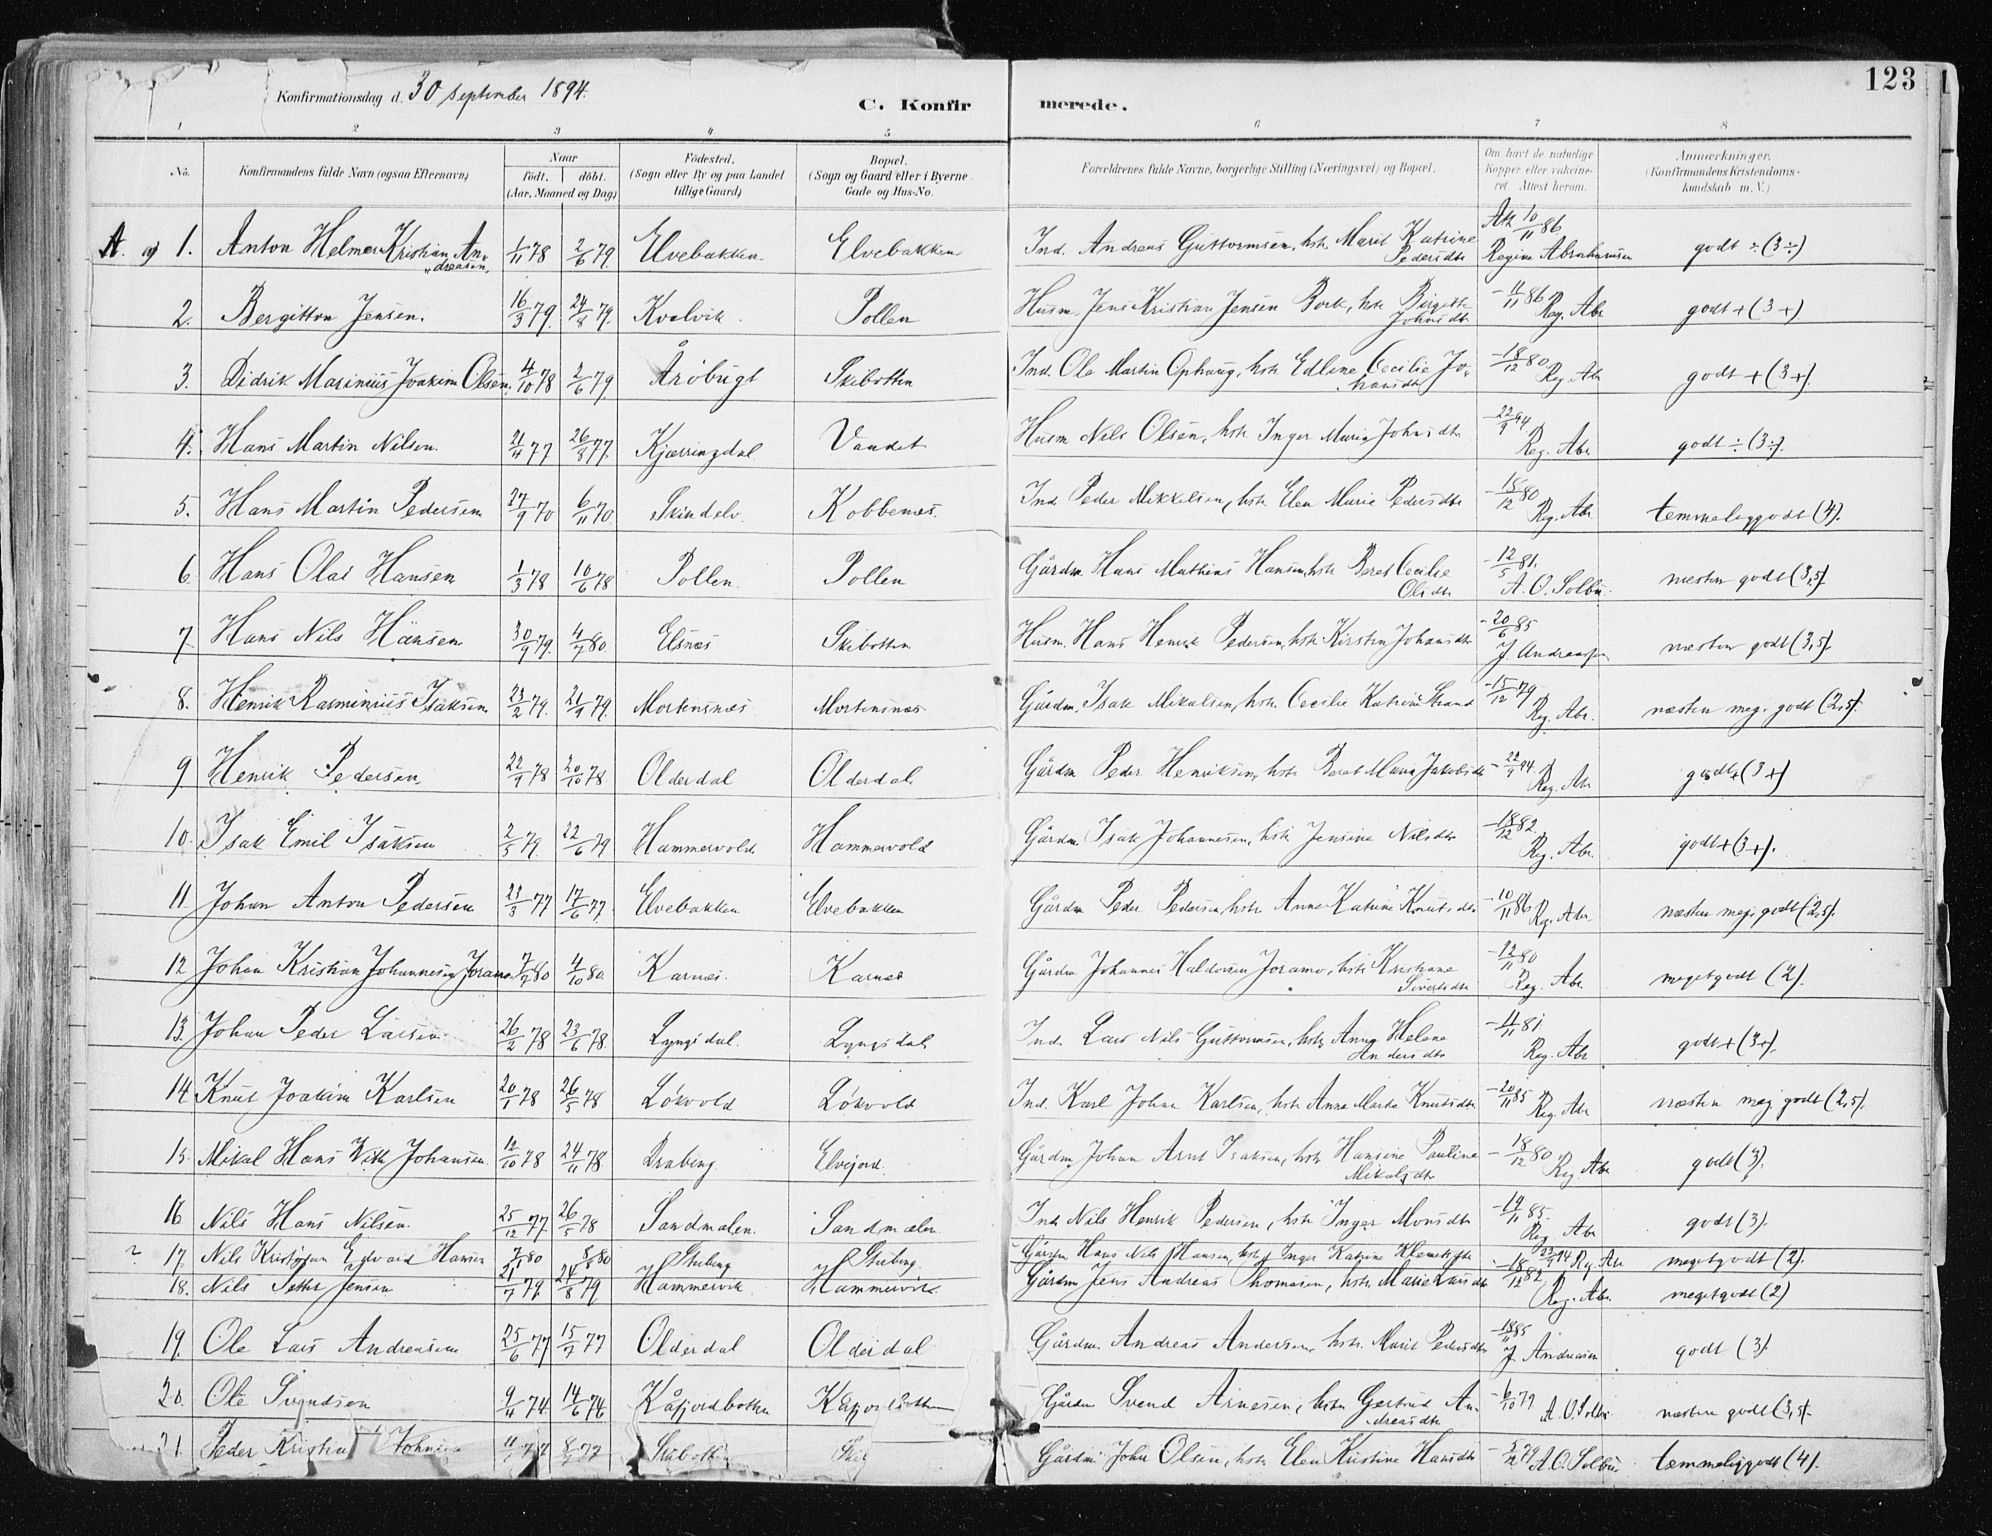 123
Konfirmationsdag d. 30 September 1894.
C. Konfirmerede.
1 2 3 4 5 6 7 8
No. Konfirmandens fulde Navn (ogsaa Efternavn) Naar født. døbt. (Aar, Maaned og Dag) Fødested. (Sogn eller By og paa Landet tillige Gaard) Bopæl. (Sogn og Gaard eller i Byerne Gade og Hus-No. Forældrenes fulde Navne, borgerlige Stilling (Næringsvei) og Bopæl. Om havt de naturlige Kopper eller vakcineret. Attest herom. Anmærkninger. (Konfirmandens Kristendomskundskab m. V.)
A. og 1. Anton Helmer Kristian Andreasen, 1/11 78 2/6 79. Elvebakken. Elvebakken Ind. Andreas Guttormsen, hstr. Marit Katrine Pedersdtr Att 10/11 86. Regine Abrahamsen godt ÷ (3÷)
2. Bergitton Jensen. 16/3 79. 24/8 79. Kvalvik. Pollen Husm. Jens Kristian Jensen Bork, hstr Birgitte Johnsdtr - 4/11 86 Reg. Abr godt + (3+)
3. Didrik Marinius Joakim Olsen. 4/10 78 2/6 79 Åröbugt Skibotten Ind. Ole Martin Ophaug, hstr Edline Cecilie Johansdtr - 18/12 80 Reg. Abr godt + (3+).
4. Hans Martin Nilsen. 21/4 77 26/8 77. Kjærringdal Vandet Husm Nils Olsen, hstr Inger Maria Johnsdtr - 22/9 94 Reg. Abr godt ÷ (3÷).
5. Hans Martin Pedersen 27/9 70 6/11 70. Skindelv. Kobbenes. Ind. Peder Mikkelsen, hstr. Elen Marie Pedersdtr - 18/12 80 Reg. Abr. temmeliggodt (4).
6. Hans Olai Hansen 1/3 78 10/6 78 Pollen. Pollen Gårdm. Hans Mathias Hansen, hstr Beret Cecilie Olsdtr - 12/5 81. A. O. Solbu. næsten godt (3,5)
7. Hans Nils Hansen 30/9 79. 4/7 80. Elsnæs Skibotten Husm. Hans Henrik Pedersen, hstr Kirsten Johansdtr - 20/6 85 J. Andreassen næsten godt (3,5).
8. Henrik Rasminius Isaksen 23/2 79. 21/9 79. Mortensnæs Mortensnæs Gårdm. Isak Mikalsen, hstr. Cecilie Katrine Strand - 15/12 79 Reg. Abr. næsten meg. godt (2,5).
9 Henrik Pedersen, 22/9 78 20/10 78 Olderdal Olderdal. Gårdm Peder Henriksen, hstr Beret Maria Jakobsdtr - 22/9 94. Reg. Abr godt + (3+)
10. Isak Emil Isaksen 2/5 79. 22/6 79 Hammervold. Hammervold Gårdm. Isak Johannesen, hstr Jensine Nilsdtr - 18/12 82. Reg. Abr. godt + (3+).
11 Johan Anton Pedersen 23/3 77 17/6 77. Elvebakken Elvebakken Gårdm Peder Pedersen, hstr. Anne Katrine Knutsdtr - 10/11 86 Reg. Abr næsten meg. godt (2,5).
12 Johan Kristian Johannesen Joramo 7/7 80 4/10 80. Karnes. Karnes Gårdm Johannes Haldorsen Joramo, hstr Kristiane Sivertsdtr - 12/11 80 Reg. Abr. megetgodt (2).
13. Johan Peder Larsen. 26/2 78 23/6 78. Lyngsdal. Lyngsdal. Ind. Lars Nils Guttormsen, hstr Anna Helene Andersdtr - 4/11 81. Reg. Abr godt + (3+).
14 Knut Joakim Karlsen 20/1 78 26/5 78 Lökvold Lökvold Ind. Karl Johan Karlsen, hstr Anne Marta Knutsdtr - 20/11 85 Reg. Abr næsten meg. godt (2,5).
15. Mikal Hans Johansen. 12/10 78 24/11 78 Draheng. Elvejord. Gårdm. Johan Arnt Isaksen, hstr Hansine Pauline Mikalsdtr - 18/12 80 Reg. Abr godt (3).
16 Nils Hans Nilsen. 25/12 77. 26/5 78 Sandmælen. Sandmælen Ind. Nils Henrik Pedersen, hstr Inger Monsdtr - 14/11 85. Reg. Abr godt (3).
? 17. Nils Kristian Edvard Hansen 7/1 80 8/8 80 Stubeng Stubeng. Gårdm Hans Nils Hansen, hstr Inger Katrine Klemetsdtr - 23/9 94 Reg. Abr megetgodt (2).
18. Nils Petter Jensen 21/7 79. 24/8 79 Hammervik Hammervik. Gårdm Jens Andreas Thomasen, hstr Marie Larsdtr - 18/12 82 Reg. Abr. megetgodt (2)
19. Ole Lars Andreasen 25/6 77 15/7 77 Olderdal Olderdal Gårdm. Andreas Andersen, hstr. Marit Pedersdtr - 18/11 85 J. Andreasen godt (3).
20. Ole Svendsen 9/4 74. 14/6 74. Kåfjordbotten Kåfjordbotten Gårdm Svend Arnesen, hstr Gjertrud Andreasdtr - 6/10 77 A. O. Solbu næsten godt (3,5).
21. Peder Kristian Johnsen 77 77 Skibotten Skib Gårdm. John Olsen, hstr. Elen Kristine Hansdtr - 5/2 79 A. O. Solbu temmeliggodt (4).